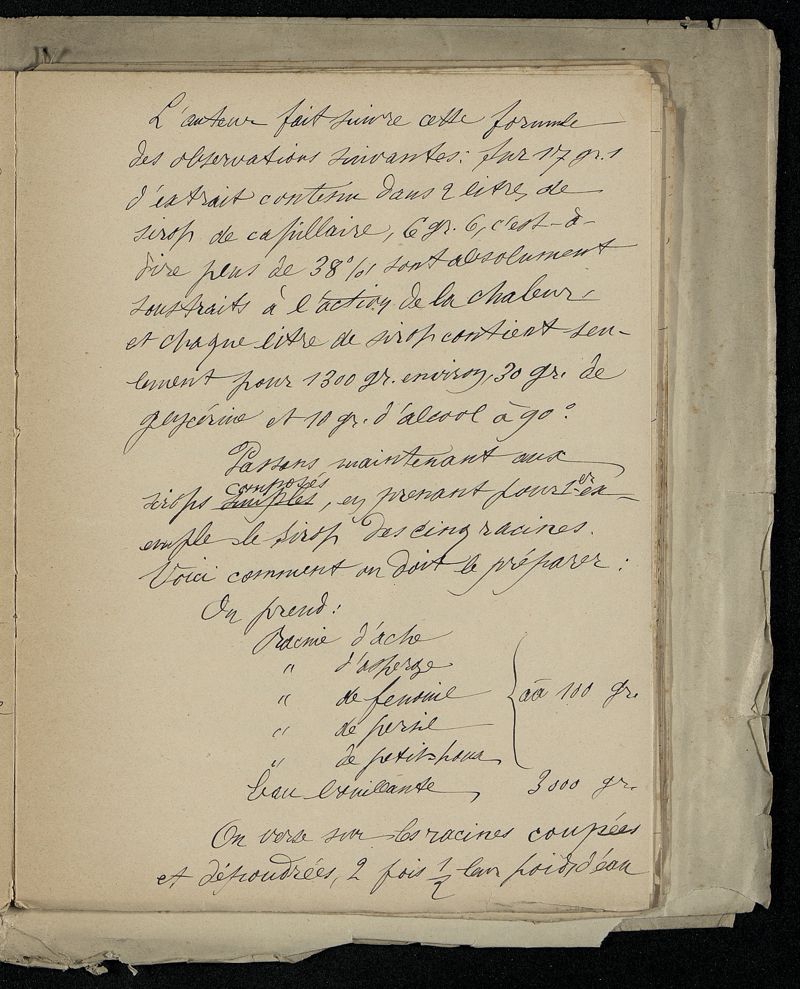 L'auteur fait suivre cette formule
des observations suivantes: sur 17 gr. 1
d'extrait contenu dans 2 litres de
sirop de capillaire, 6 gr. 6, c'est-à-
dire plus de 38 %, sont absolument
soustraits à l'action de la chaleur,
et chaque litre de sirop contient seu-
lement pour 1300 gr. environ, 30 gr. de
glycérine et 10 gr. d'alcool à 90°.
Passons maintenant aux
composés
sirops simples, en prenant pour 1er ex-
emple le sirop des cinq racines.
Voici comment on doit le préparer:
On prend:
Racine d'ache
" d'asperge
" de fenouil
" de persil
" de petit-houx
āā 100 gr.
Eau bouillante 3000 gr.
On verse sur les racines coupées
et dépoudrées, 2 fois 1/2 leur poids d'eau